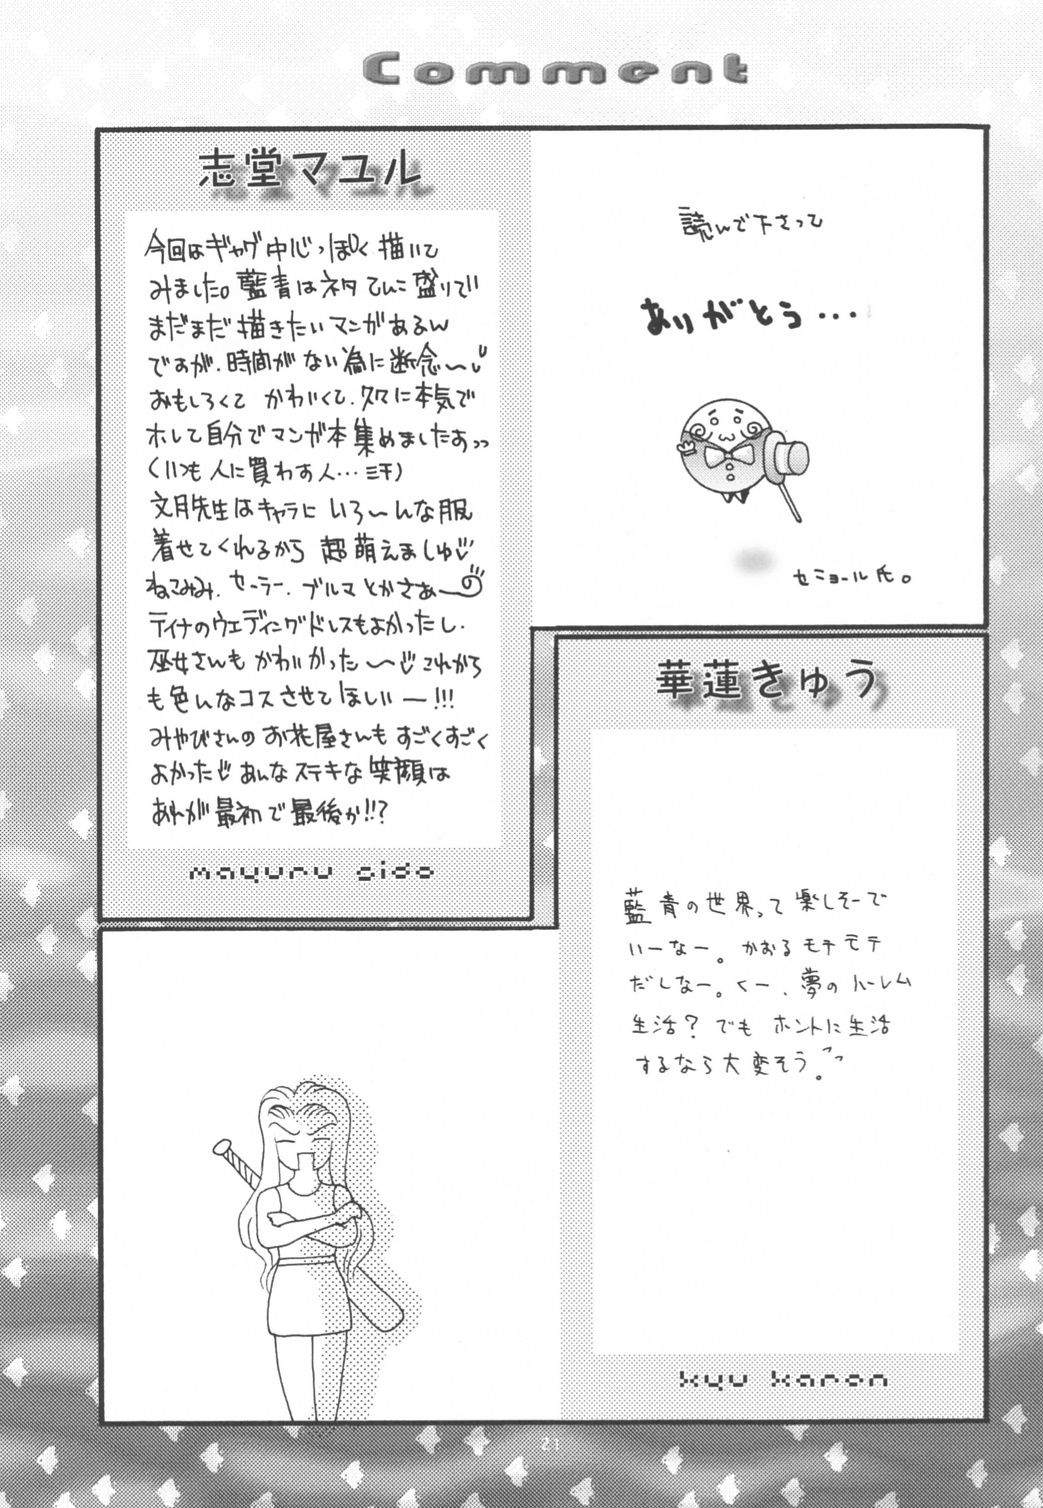 Comment
志堂マユル
今回はギャグ中心っぽく描いて
みました。藍青はネタてんこ盛りでい
まだまだ描きたいマンガがあるん
ですが、時間がない為に断念〜
おもしろくて かわいくて、久々に本気で
ホレて自分でマンガ本集めましたあっっ
(いつも人に買わす人…ミ干)
文月先生はキャラに いろ〜んな服
着せてくれるから 超萌えましゅ
ねこみみ、セーラー、ブルマとかさぁ〜
ティナのウェディングドレスもよかったし、
巫女さんも かわいかった〜 これから
も色んなコスさせてほしいー!!!
みやびさんのお花屋さんもすごくすごく
よかった あんなステキな笑顔は
あれが最初で最後か!!?
mayuru sido
読んで下さって
ありがとう...
セニョール氏。
華蓮きゅう
藍青の世界って楽しそーで
いーなー。かおるモテモテ
だしなー。くー、夢のハーレム
生活? でも ホントに生活
するなら大変そう。
kyu karen
21